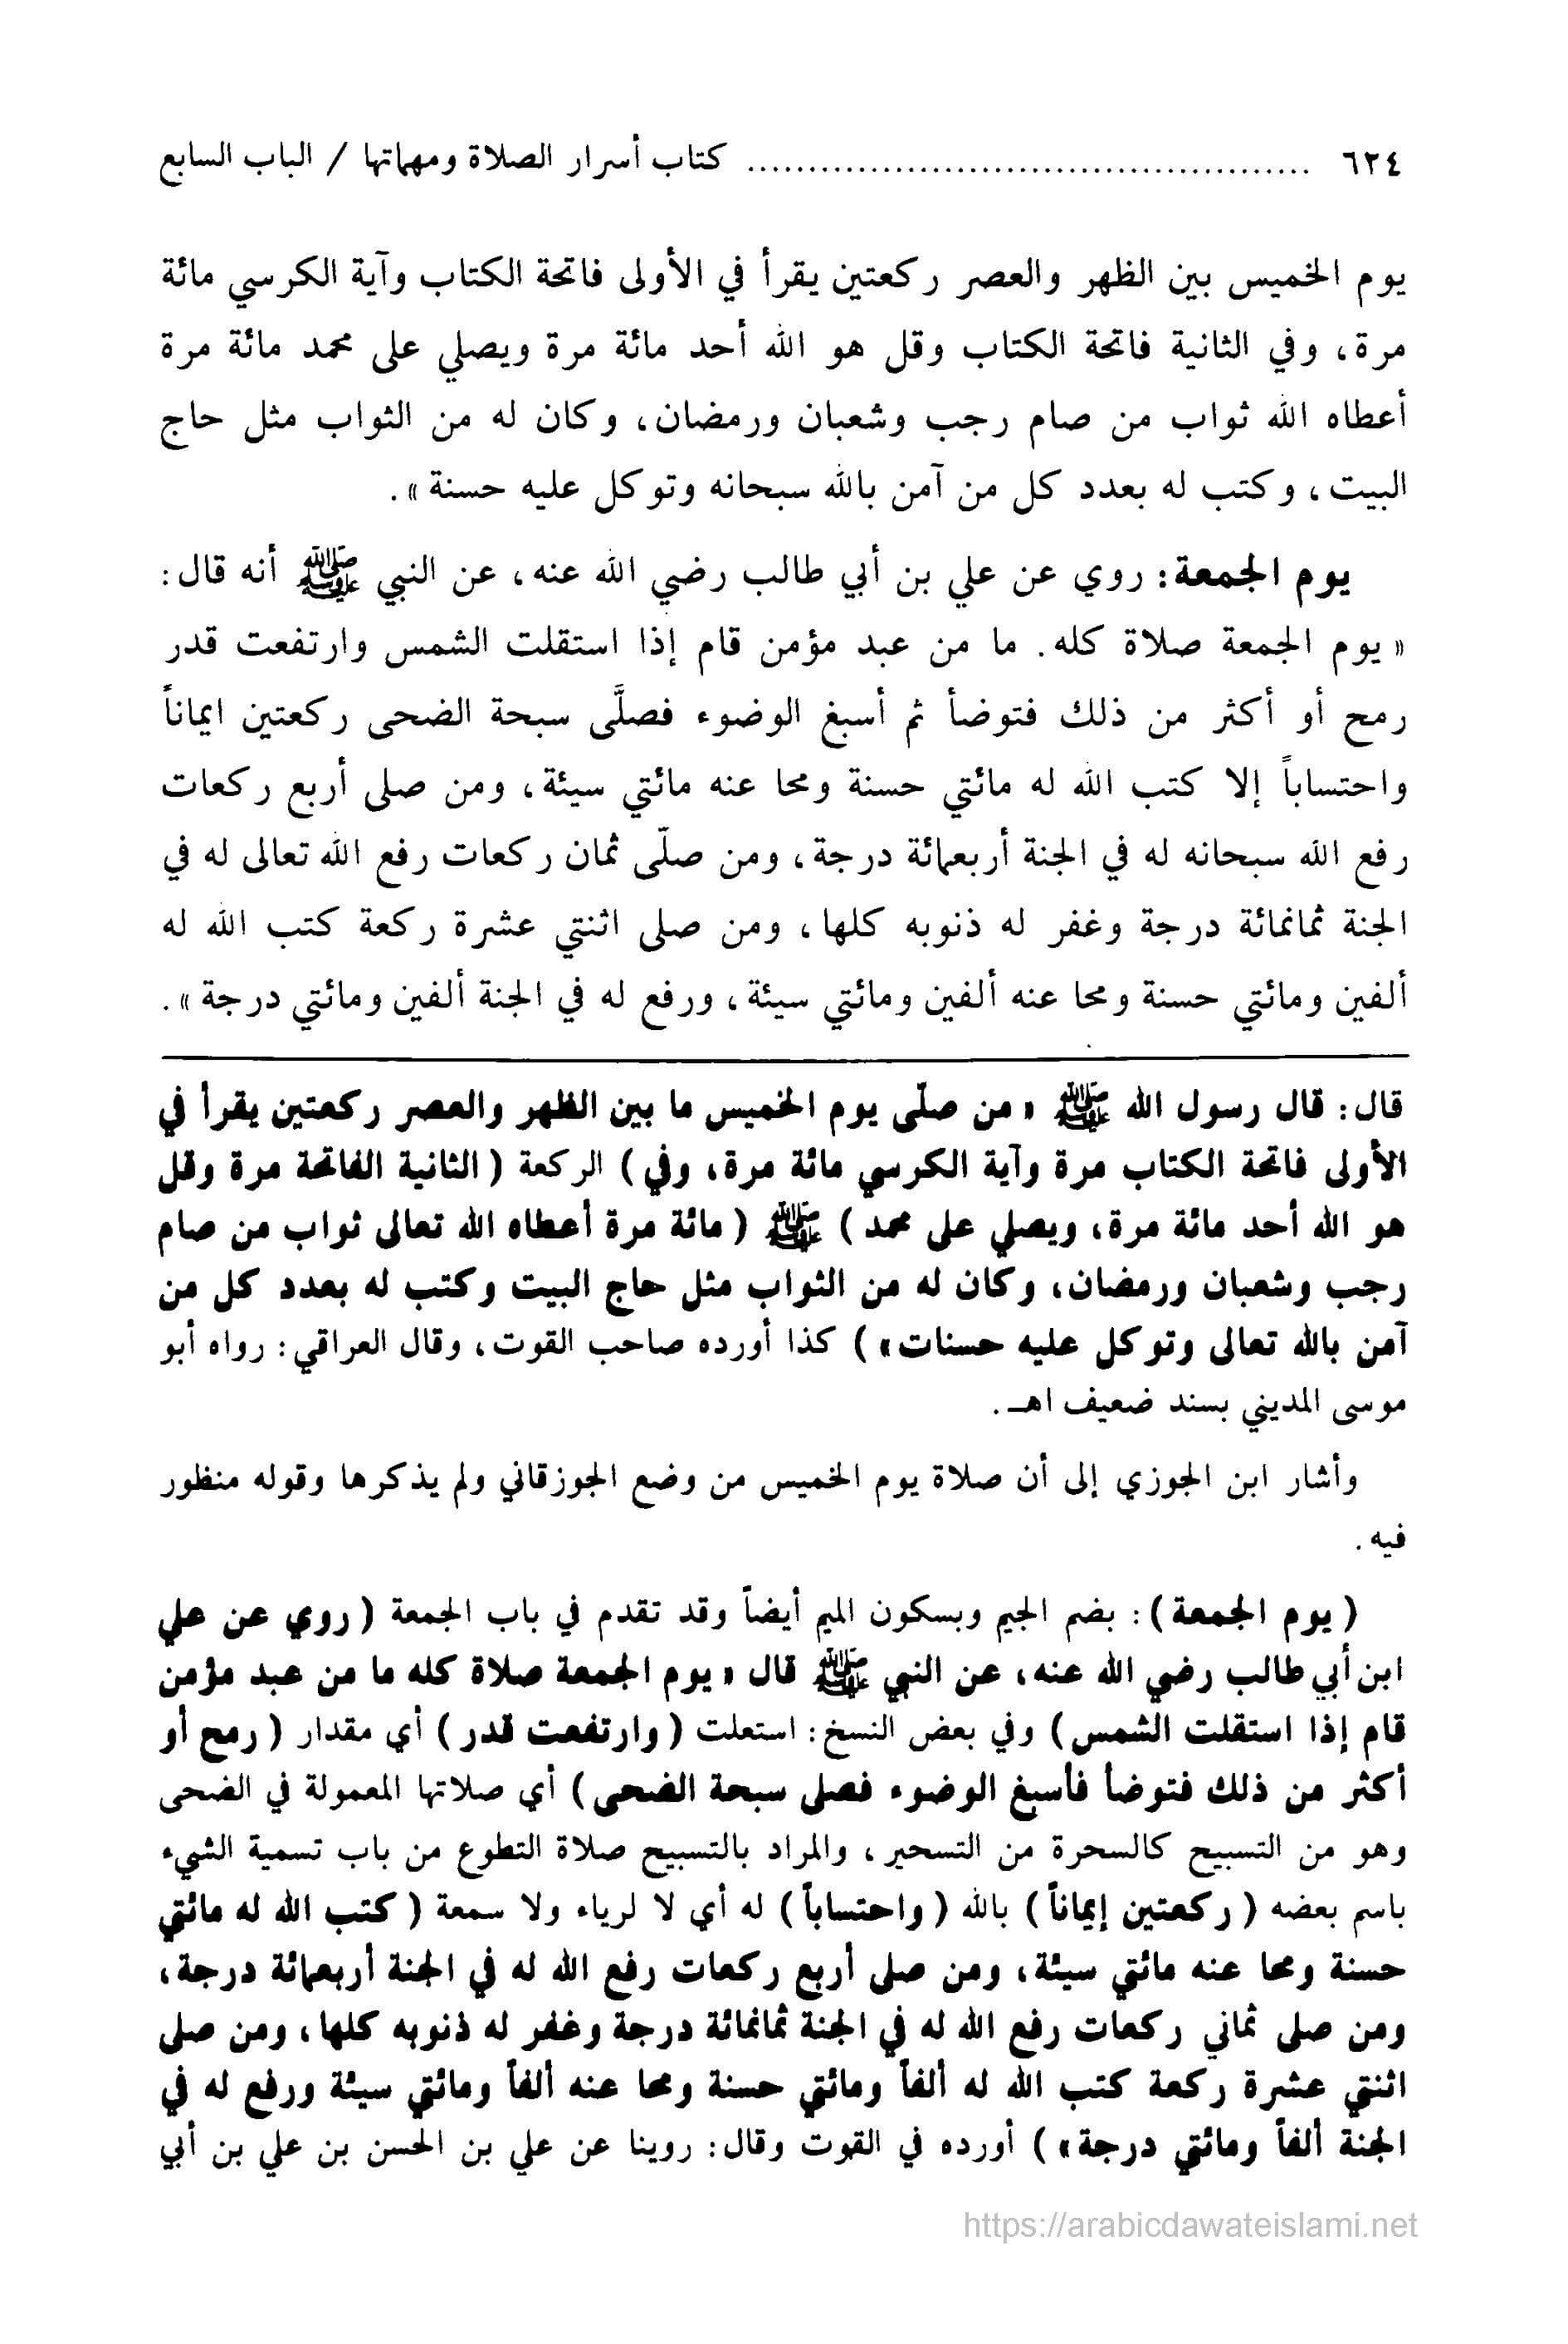 ٦٢٤ ................................................ كتاب أسرار الصلاة ومهماتها / الباب السابع
يوم الخميس بين الظهر والعصر ركعتين يقرأ في الأولى فاتحة الكتاب وآية الكرسي مائة
مرة، وفي الثانية فاتحة الكتاب وقل هو الله أحد مائة مرة ويصلي على محمد مائة مرة
أعطاه الله ثواب من صام رجب وشعبان ورمضان، وكان له من الثواب مثل حاج
البيت، وكتب له بعدد كل من آمن بالله سبحانه وتوكل عليه حسنة ».
يوم الجمعة: روي عن علي بن أبي طالب رضي الله عنه، عن النبي ﷺ أنه قال:
« يوم الجمعة صلاة كله. ما من عبد مؤمن قام إذا استقلت الشمس وارتفعت قدر
رمح أو أكثر من ذلك فتوضأ ثم أسبغ الوضوء فصلَّى سبحة الضحى ركعتين ايماناً
واحتساباً إلا كتب الله له مائتي حسنة ومحا عنه مائتي سيئة، ومن صلى أربع ركعات
رفع الله سبحانه له في الجنة أربعمائة درجة، ومن صلّى ثمان ركعات رفع الله تعالى له في
الجنة ثمانمائة درجة وغفر له ذنوبه كلها، ومن صلى اثنتي عشرة ركعة كتب الله له
ألفين ومائتي حسنة ومحا عنه ألفين ومائتي سيئة، ورفع له في الجنة ألفين ومائتي درجة ».
قال: قال رسول الله ﷺ « من صلّى يوم الخميس ما بين الظهر والعصر ركعتين يقرأ في
الأولى فاتحة الكتاب مرة وآية الكرسي مائة مرة، وفي ) الركعة ( الثانية الفاتحة مرة وقل
هو الله أحد مائة مرة، ويصلي على محمد ) ﷺ ( مائة مرة أعطاه الله تعالى ثواب من صام
رجب وشعبان ورمضان، وكان له من الثواب مثل حاج البيت وكتب له بعدد كل من
آمن بالله تعالى وتوكل عليه حسنات» ) كذا أورده صاحب القوت، وقال العراقي: رواه أبو
موسى المديني بسند ضعيف اهـ.
وأشار ابن الجوزي إلى أن صلاة يوم الخميس من وضع الجوزقاني ولم يذكرها وقوله منظور
فيه.
( يوم الجمعة ): بضم الجيم وبسكون الميم أيضاً وقد تقدم في باب الجمعة ( روي عن علي
ابن أبي طالب رضي الله عنه، عن النبي ﷺ قال « يوم الجمعة صلاة كله ما من عبد مؤمن
قام إذا استقلت الشمس ) وفي بعض النسخ: استعلت ( وارتفعت قدر ) أي مقدار ( رمح أو
أكثر من ذلك فتوضأ فأسبغ الوضوء فصلى سبحة الضحى ) أي صلاتها المعمولة في الضحى
وهو من التسبيح كالسحرة من التسحير، والمراد بالتسبيح صلاة التطوع من باب تسمية الشيء
باسم بعضه ( ركعتين إيماناً ) بالله ( واحتساباً ) له أي لا لرياء ولا سمعة ( كتب الله له مائتي
حسنة ومحا عنه مائتي سيئة، ومن صلى أربع ركعات رفع الله له في الجنة أربعمائة درجة،
ومن صلى ثماني ركعات رفع الله له في الجنة ثمانمائة درجة وغفر له ذنوبه كلها، ومن صلى
اثنتي عشرة ركعة كتب الله له ألفاً ومائتي حسنة ومحا عنه ألفاً ومائتي سيئة ورفع له في
الجنة ألفاً ومائتي درجة» ) أورده في القوت وقال: روينا عن علي بن الحسن بن علي بن أبي
https://arabicdawateislami.net